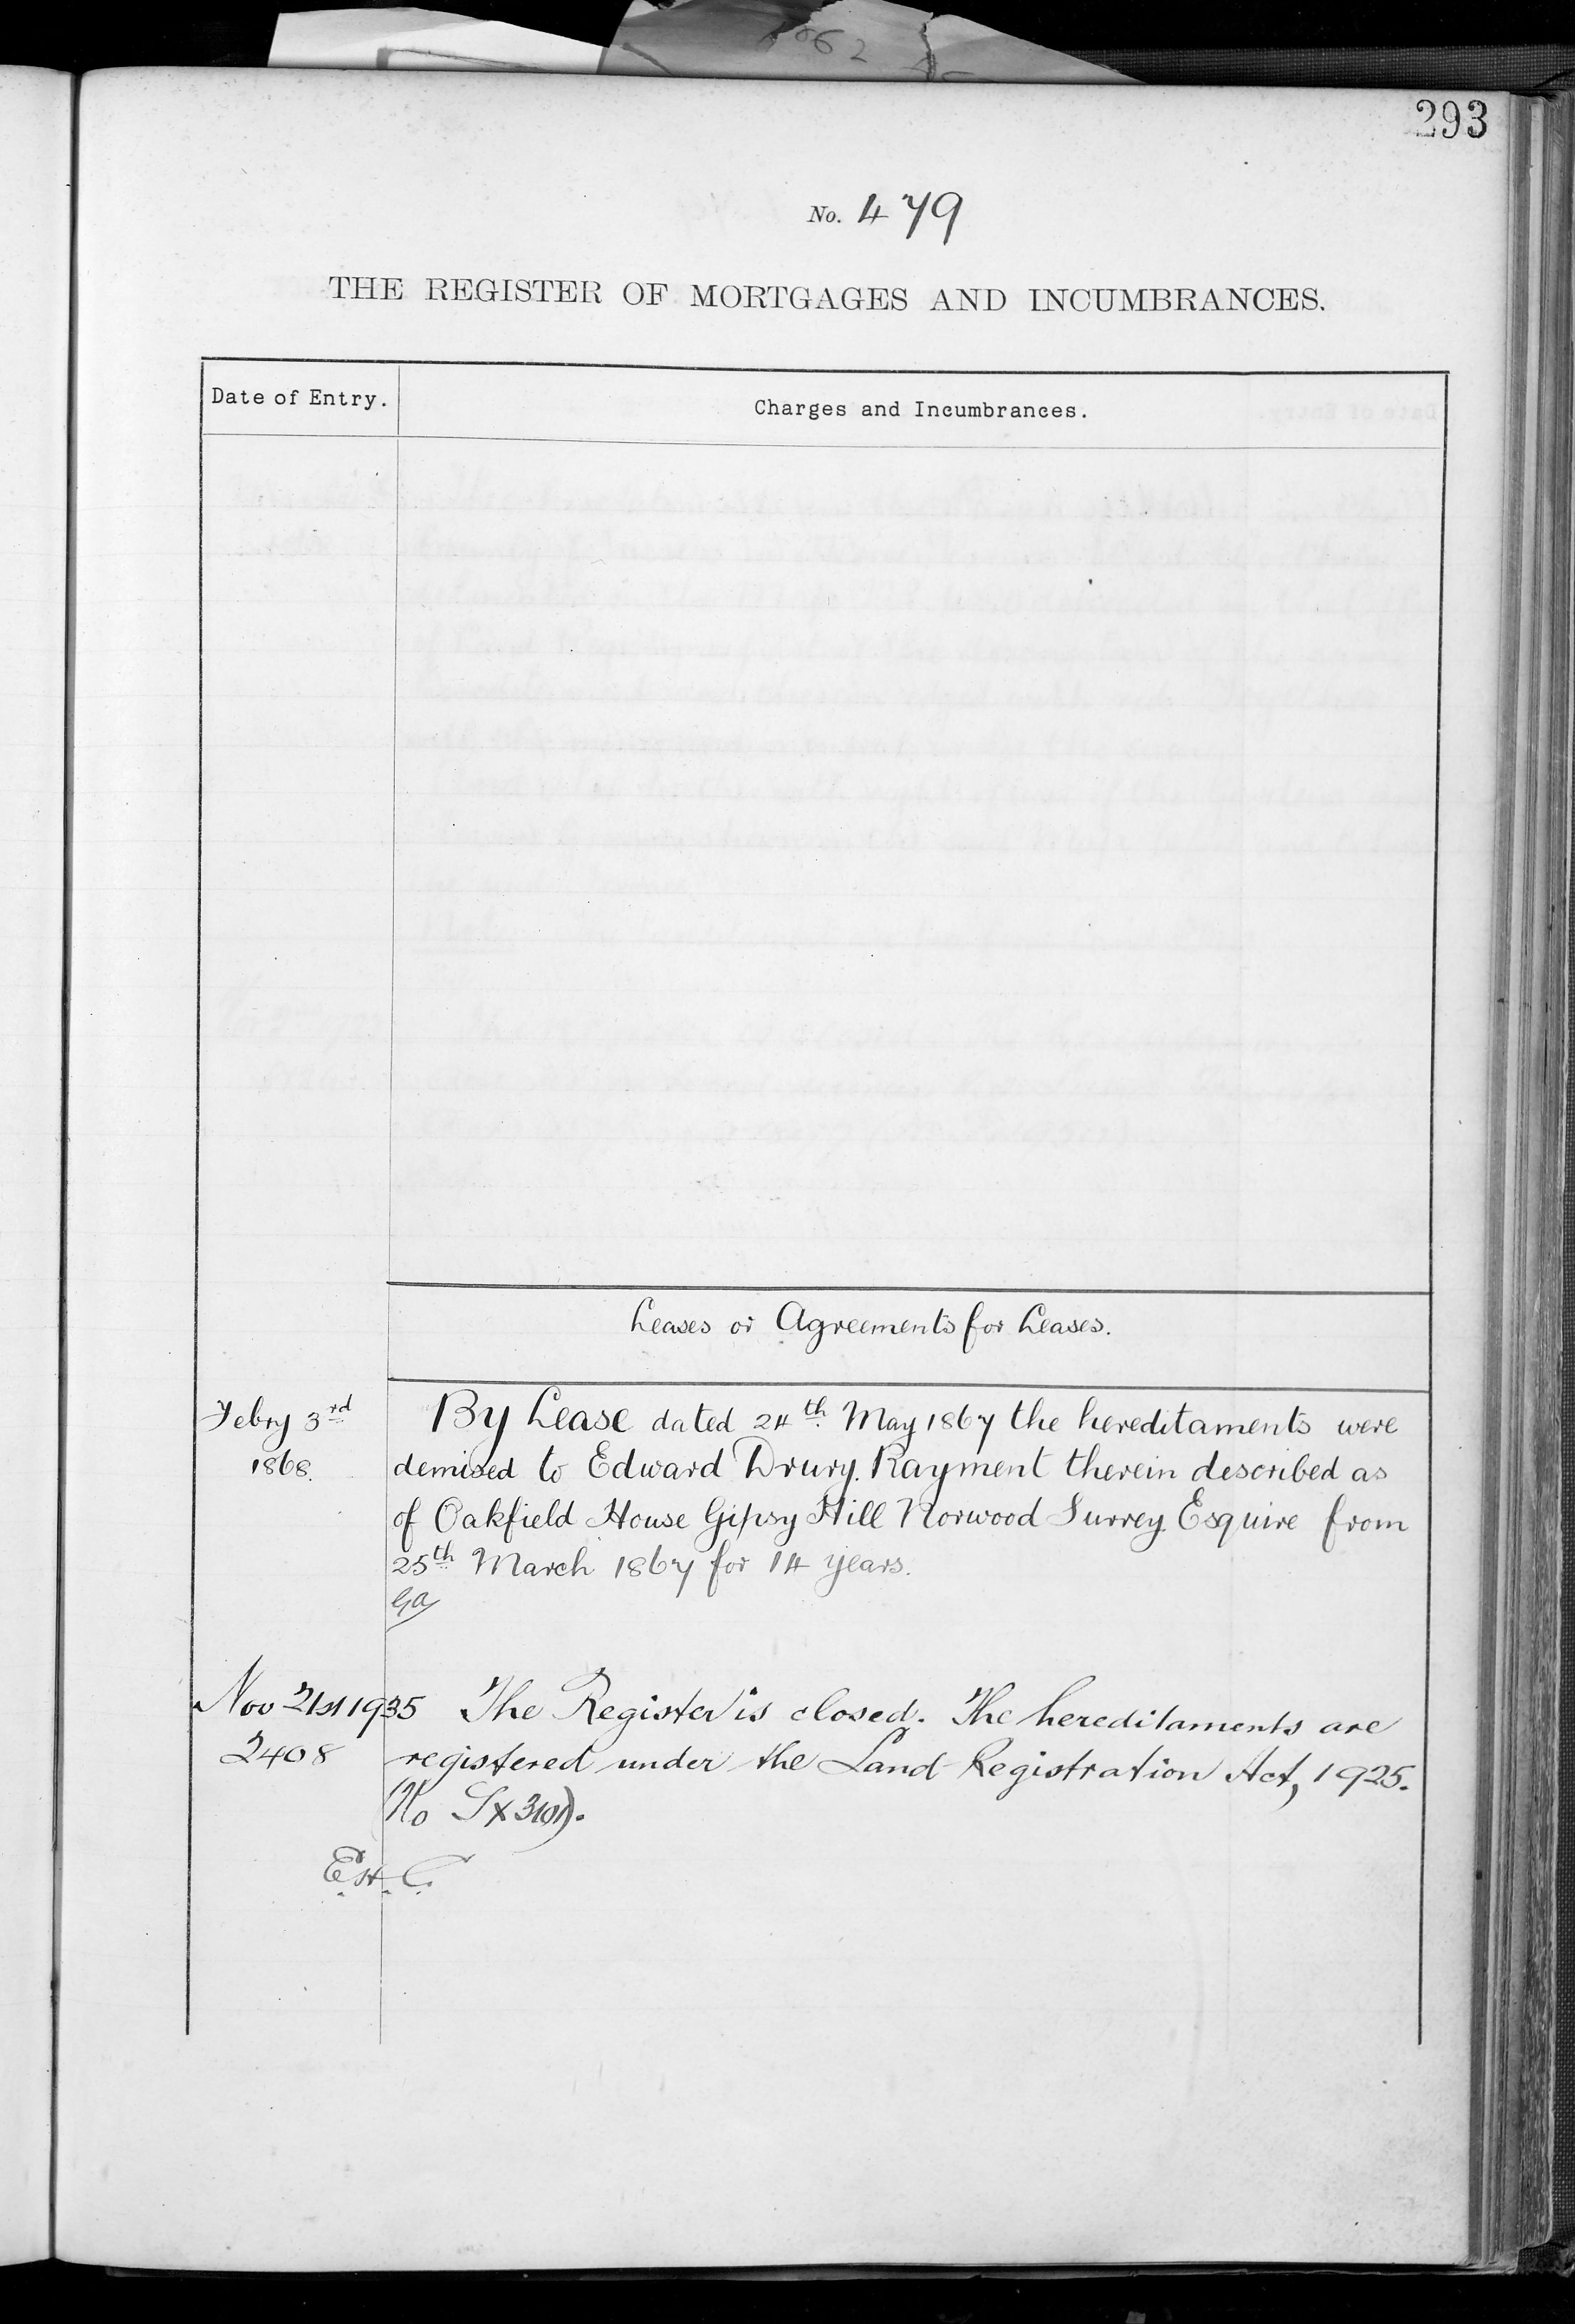 293
No. 479
THE REGISTER OF MORTGAGES AND INCUMBRANCES.
Date of Entry.
Charges and Incumbrances.
Leases or Agreements for Leases.
Febry 3rd
1868.
By Lease dated 24th May 1867 the hereditaments were
demised to Edward Drury Rayment therein described as
of Oakfield House Gipsy Hill Norwood Surrey Esquire from
25th March 1867 for 14 years.
Nov 21st 1935
2408
The Register is closed. The hereditaments are
registered under the Land Registration Act, 1925.
No
E.H.C.